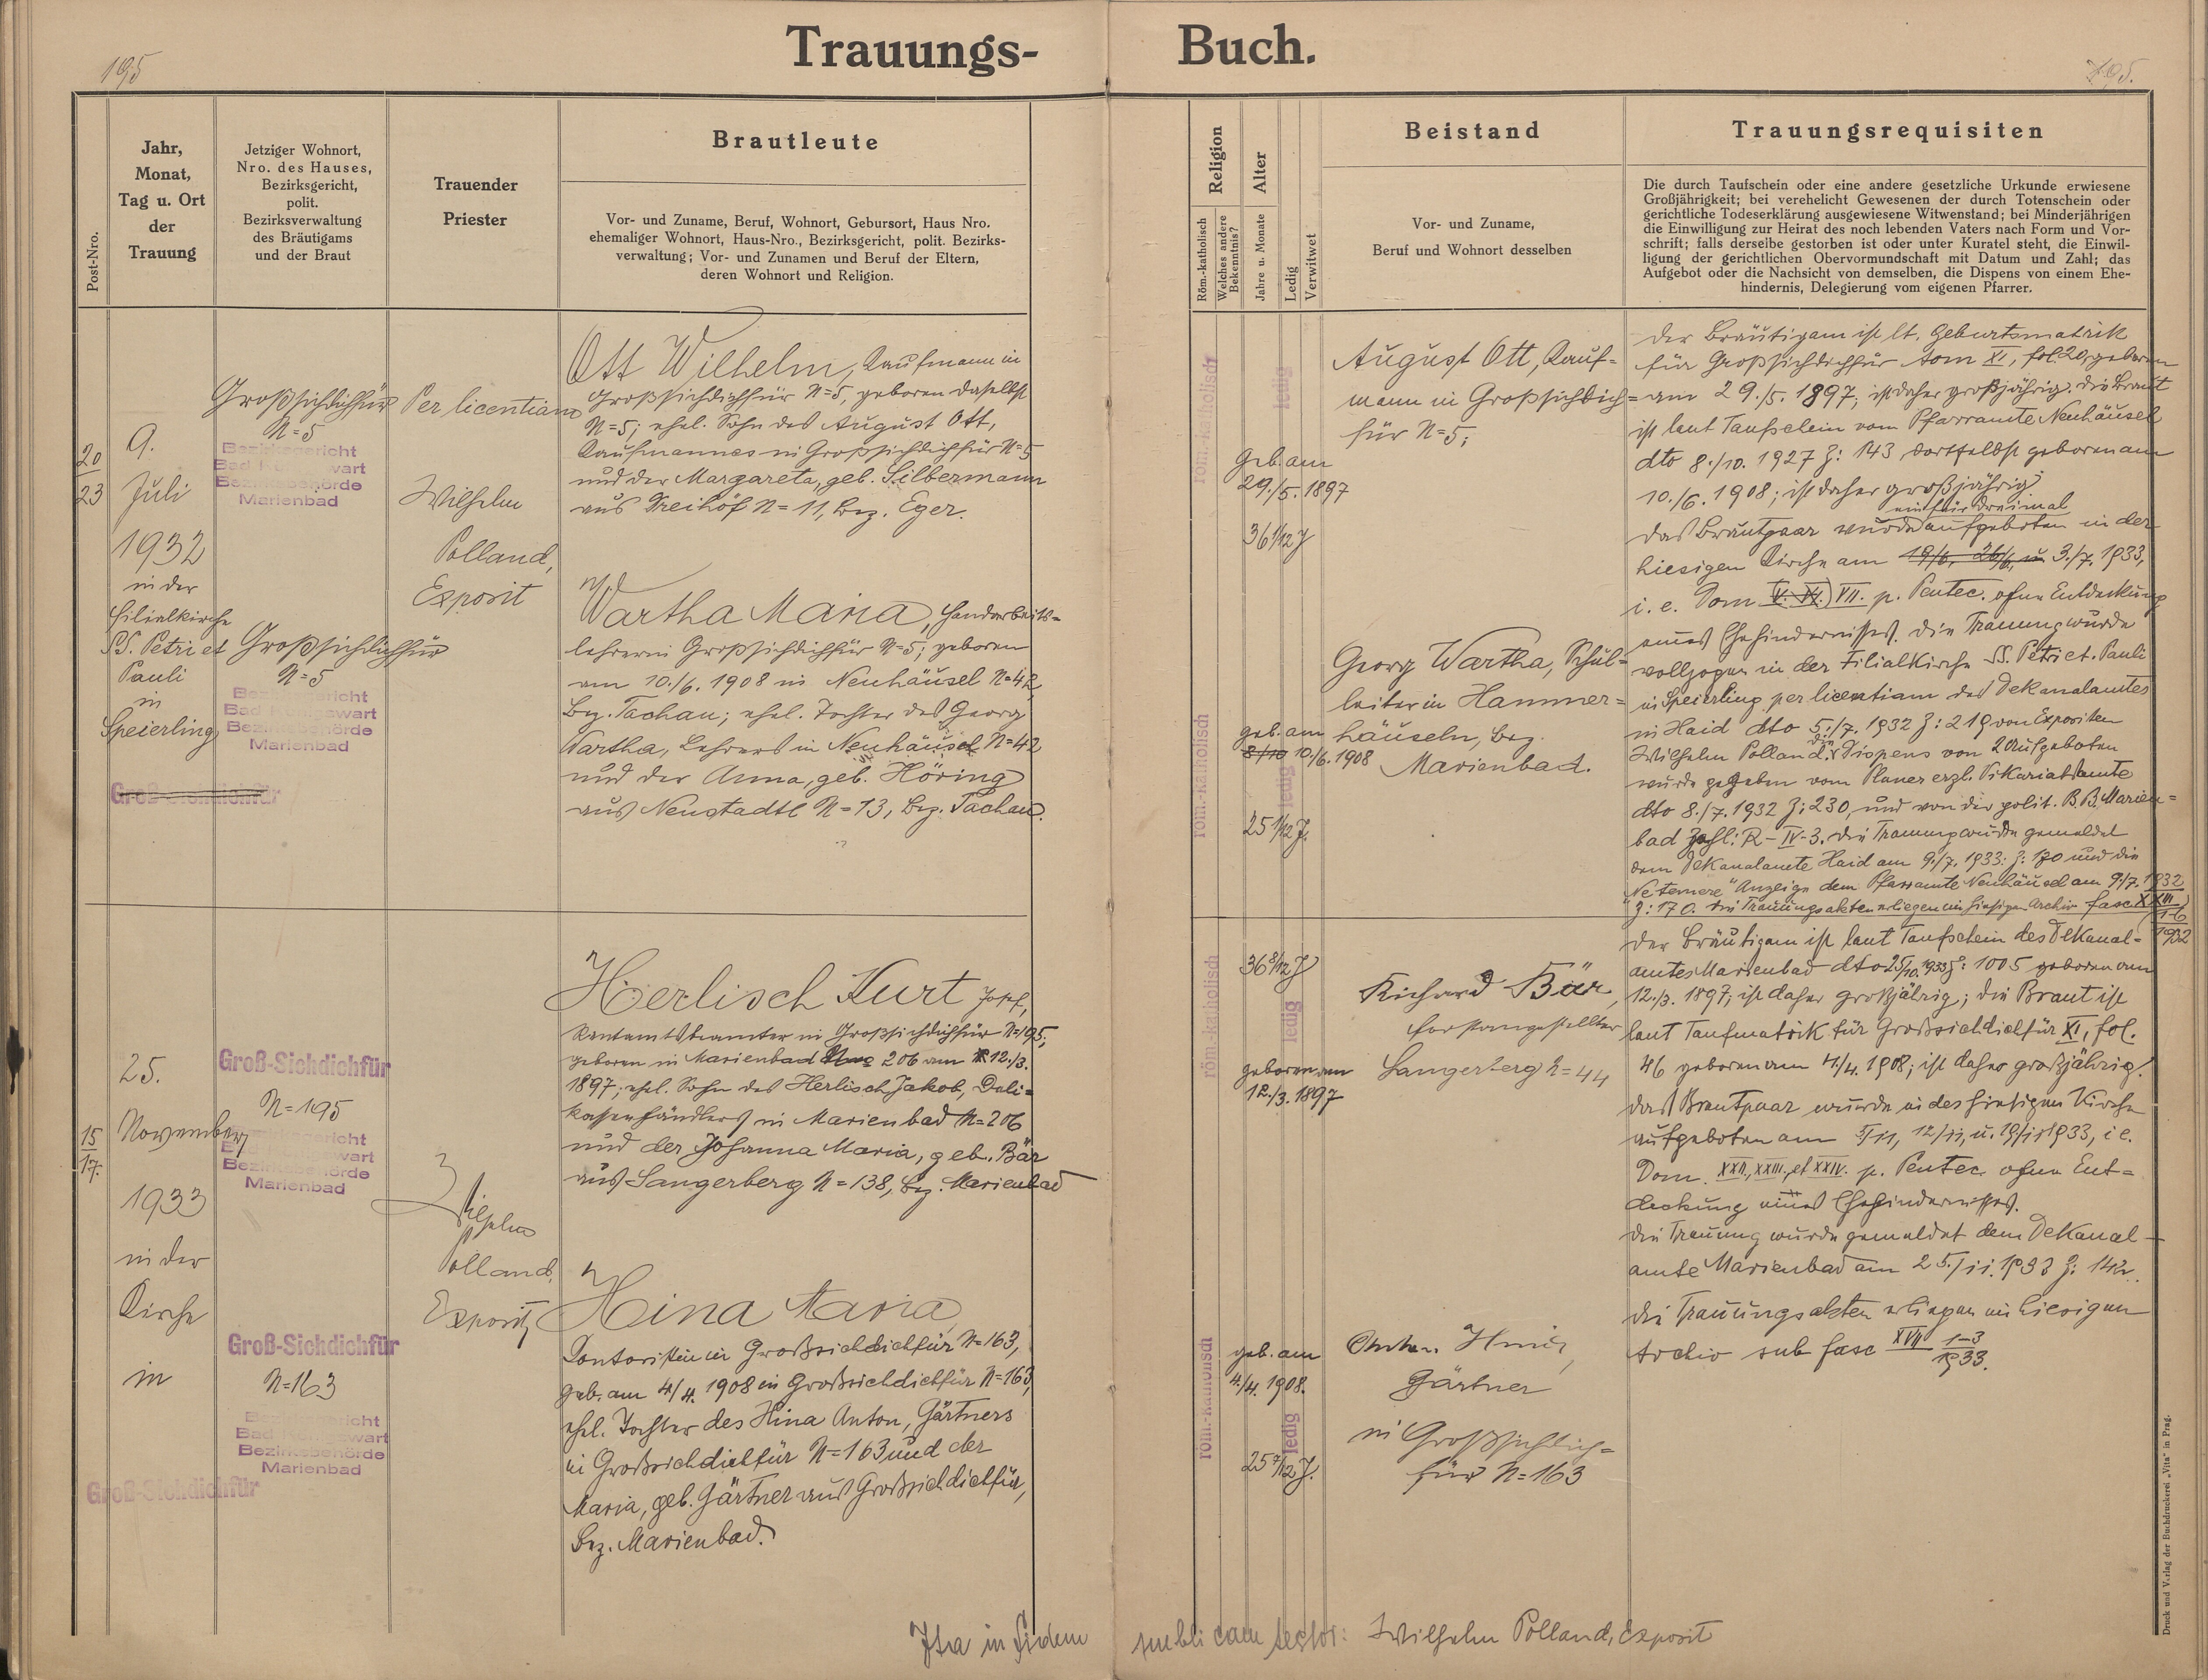 195
Trauungs-
Buch.
195.
Post-Nro.
Jahr,
Monat,
Tag u. Ort
der
Trauung
Jetziger Wohnort,
Nro. des Hauses,
Bezirksgericht,
polit.
Bezirksverwaltung
des Bräutigams
und der Braut
Trauender
Priester
Brautleute
Vor- und Zuname, Beruf, Wohnort, Gebursort, Haus Nro.
ehemaliger Wohnort, Haus-Nro., Bezirksgericht, polit. Bezirks-
verwaltung; Vor- und Zunamen und Beruf der Eltern,
deren Wohnort und Religion.
Religion
Röm.-katholisch
Welches andere
Bekenntnis?
Alter
Jahre u. Monate
Ledig
Verwitwet
Beistand
Vor- und Zuname,
Beruf und Wohnort desselben
Trauungsrequisiten
Die durch Taufschein oder eine andere gesetzliche Urkunde erwiesene
Großjährigkeit; bei verehelicht Gewesenen der durch Totenschein oder
gerichtliche Todeserklärung ausgewiesene Witwenstand; bei Minderjährigen
die Einwilligung zur Heirat des noch lebenden Vaters nach Form und Vor-
schrift; falls derselbe gestorben ist oder unter Kuratel steht, die Einwil-
ligung der gerichtlichen Obervormundschaft mit Datum und Zahl; das
Aufgebot oder die Nachsicht von demselben, die Dispens von einem Ehe-
hindernis, Delegierung vom eigenen Pfarrer.
20
23
9.
Juli
1932
in der
Filialkirche
SS. Petri et
Pauli
in
Speierling
Groß-Sichdichfür
Großsichdichfür
N=5
Bezirksgericht
Bad Königswart
Bezirksbehörde
Marienbad
Großsichdichfür
N=5
Bezirksgericht
Bad Königswart
Bezirksbehörde
Marienbad
Per licentiam
Wilhelm
Polland,
Exposit
Ott Wilhelm, Kaufmann in
Großsichdichfür N=5, geboren daselbst
N=5; ehel. Sohn des August Ott,
Kaufmannes in Großsichdichfür N=5
und der Margareta, geb. Silbermann
aus Dreihöf N=11, Bez. Eger.
Wartha Maria, Handarbeits=
lehrerin Großsichdichfür N=5; geboren
am 10./6. 1908 in Neuhäusel N=42,
Bez. Tachau; ehel. Tochter des Georg
Wartha, Lehrers in Neuhäusel N=42
und der Anna, geb. Höring
aus Neustadtl N=13, Bez. Tachau.
röm.-katholisch
ledig
geb. am
29./5. 1897
36 1/12 J
röm.-katholisch
ledig
geb. am
8/10 10./6. 1908
25 1/12 J.
August Ott, Kauf=
mann in Großsichdich=
für N=5;
Georg Wartha, Schul=
leiter in Hammer=
häuseln, Bez.
Marienbad.
Der Bräutigam ist lt. Geburtsmatrik
für Großsichdichfür tom XI, fol. 20, geboren
am 29./5. 1897; ist daher großjährig. Die Braut
ist laut Taufschein vom Pfarramte Neuhäusel
dto 8./10. 1927 Z: 143 dortselbst geboren am
10./6. 1908; ist daher großjährig
ein für dreimal
Das Brautpaar wurde aufgeboten in der
hiesigen Kirche am 19/6, 26/6, u. 3./7. 1933,
i. e. Dom V. VI.) VII. p. Pentec. ohne Entdeckung
eines Ehehindernisses. Die Trauung wurde
vollzogen in der Filialkirche SS. Petri et. Pauli
in Speierling per licentiam des Dekanalamtes
in Haid dto 5./7. 1932 Z: 219 von Expositen
Wilhelm Polland. Die Dispens von 2 Aufgeboten
wurde gegeben vom Planer erzb. Vikariatsamte
dto 8./7. 1932 Z: 230, und von der polit. B. B. Marien=
bad Zahl: R-IV-3. Die Trauung wurde gemeldet
dem Dekanalamte Haid am 9./7. 1933: Z: 170 und die
"Ne temere" Anzeige dem Pfarramte Neuhäusel am 9./7. 1932
Z: 170. Die Trauungsakten erliegen im hiesigen Archiv fasc. XXIII
1-6
1932
15
17.
25.
November
1933
in der
Kirche
in
Groß-Sichdichfür
Groß-Sichdichfür
N=195
Bezirksgericht
Bad Königswart
Bezirksbehörde
Marienbad
Groß-Sichdichfür
N=163
Bezirksgericht
Bad Königswart
Bezirksbehörde
Marienbad
Wilhelm
Polland,
Exposit
Herlisch Kurt Josef,
Rentamtsbeamter in Großsichdichfür N=195,
geboren in Marienbad 206 am 12./3.
1897; ehel. Sohn des Herlisch Jakob, Deli=
katessenhändlers in Marienbad N=206
und der Johanna Maria, geb. Bär
aus Sangerberg N=138, Bez. Marienbad
Hina Maria,
Kontoristin in Großsichdichfür N=163,
geb. am 4/4. 1908 in Großsichdichfür N=163,
ehel. Tochter des Hina Anton, Gärtners
in Großsichdichfür N=163 und der
Maria, geb. Gärtner aus Großsichdichfür,
Bez. Marienbad.
röm.-katholisch
ledig
36 8/12 J
geboren am
12./3. 1897
röm.-katholisch
ledig
geb. am
4./4. 1908.
25 7/12 J.
Richard Bär,
Forstangestellter
Sangerberg N=44
Anton Hina,
Gärtner
in Großsichdich=
für N=163
Der Bräutigam ist laut Taufschein des Dekanal=
amtes Marienbad dto 25/10. 1933 Z: 1005 geboren am
12./3. 1897; ist daher großjährig; die Braut ist
laut Taufmatrik für Großsichdichfür XI, fol.
46 geboren am 4/4. 1908; ist daher großjährig.
Das Brautpaar wurde in des hiesigen Kirche
aufgeboten am 5/11, 12/11, u. 19/11 1933, i e.
Dom. XXII., XXIII., et XXIV. p. Pentec. ohne Ent=
deckung eines Ehehindernisses.
Die Trauung wurde gemeldet dem Dekanal-
amte Marienbad am 25./11. 1933 Z: 142.
Die Trauungsakten erliegen im hiesigen
Archiv sub fasc XVII 1-3
1933.
Ita in fidem publicam testor: Wilhelm Polland, Exposit
Druck und Verlag der Buchdruckerei „Vita" in Prag.